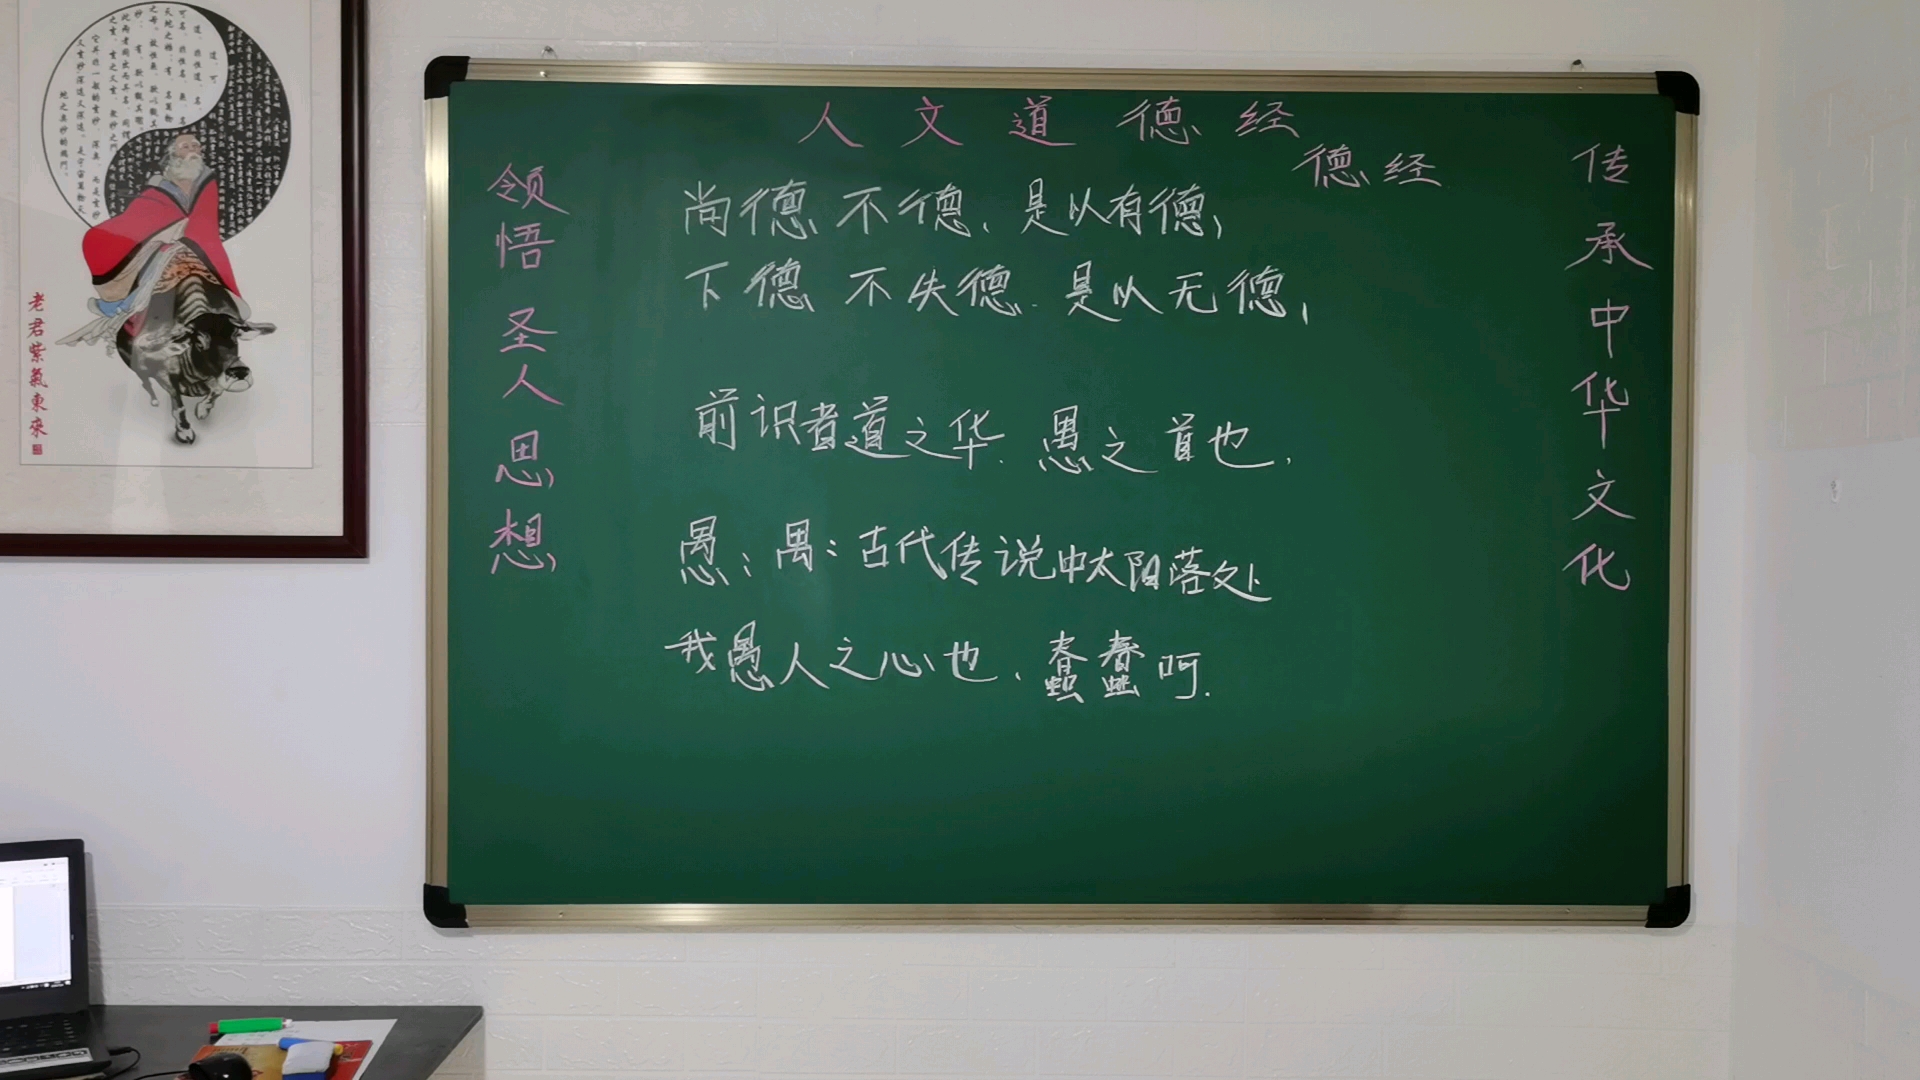 人文道德经
德经
领悟圣人思想
传承中华文化
尚德不德、是以有德,
下德不失德.是以无德,
前识者道之华.愚之首也.
愚;禺:古代传说中太阳落处
我愚人之心也.蠢蠢呵.
老君紫氣東來